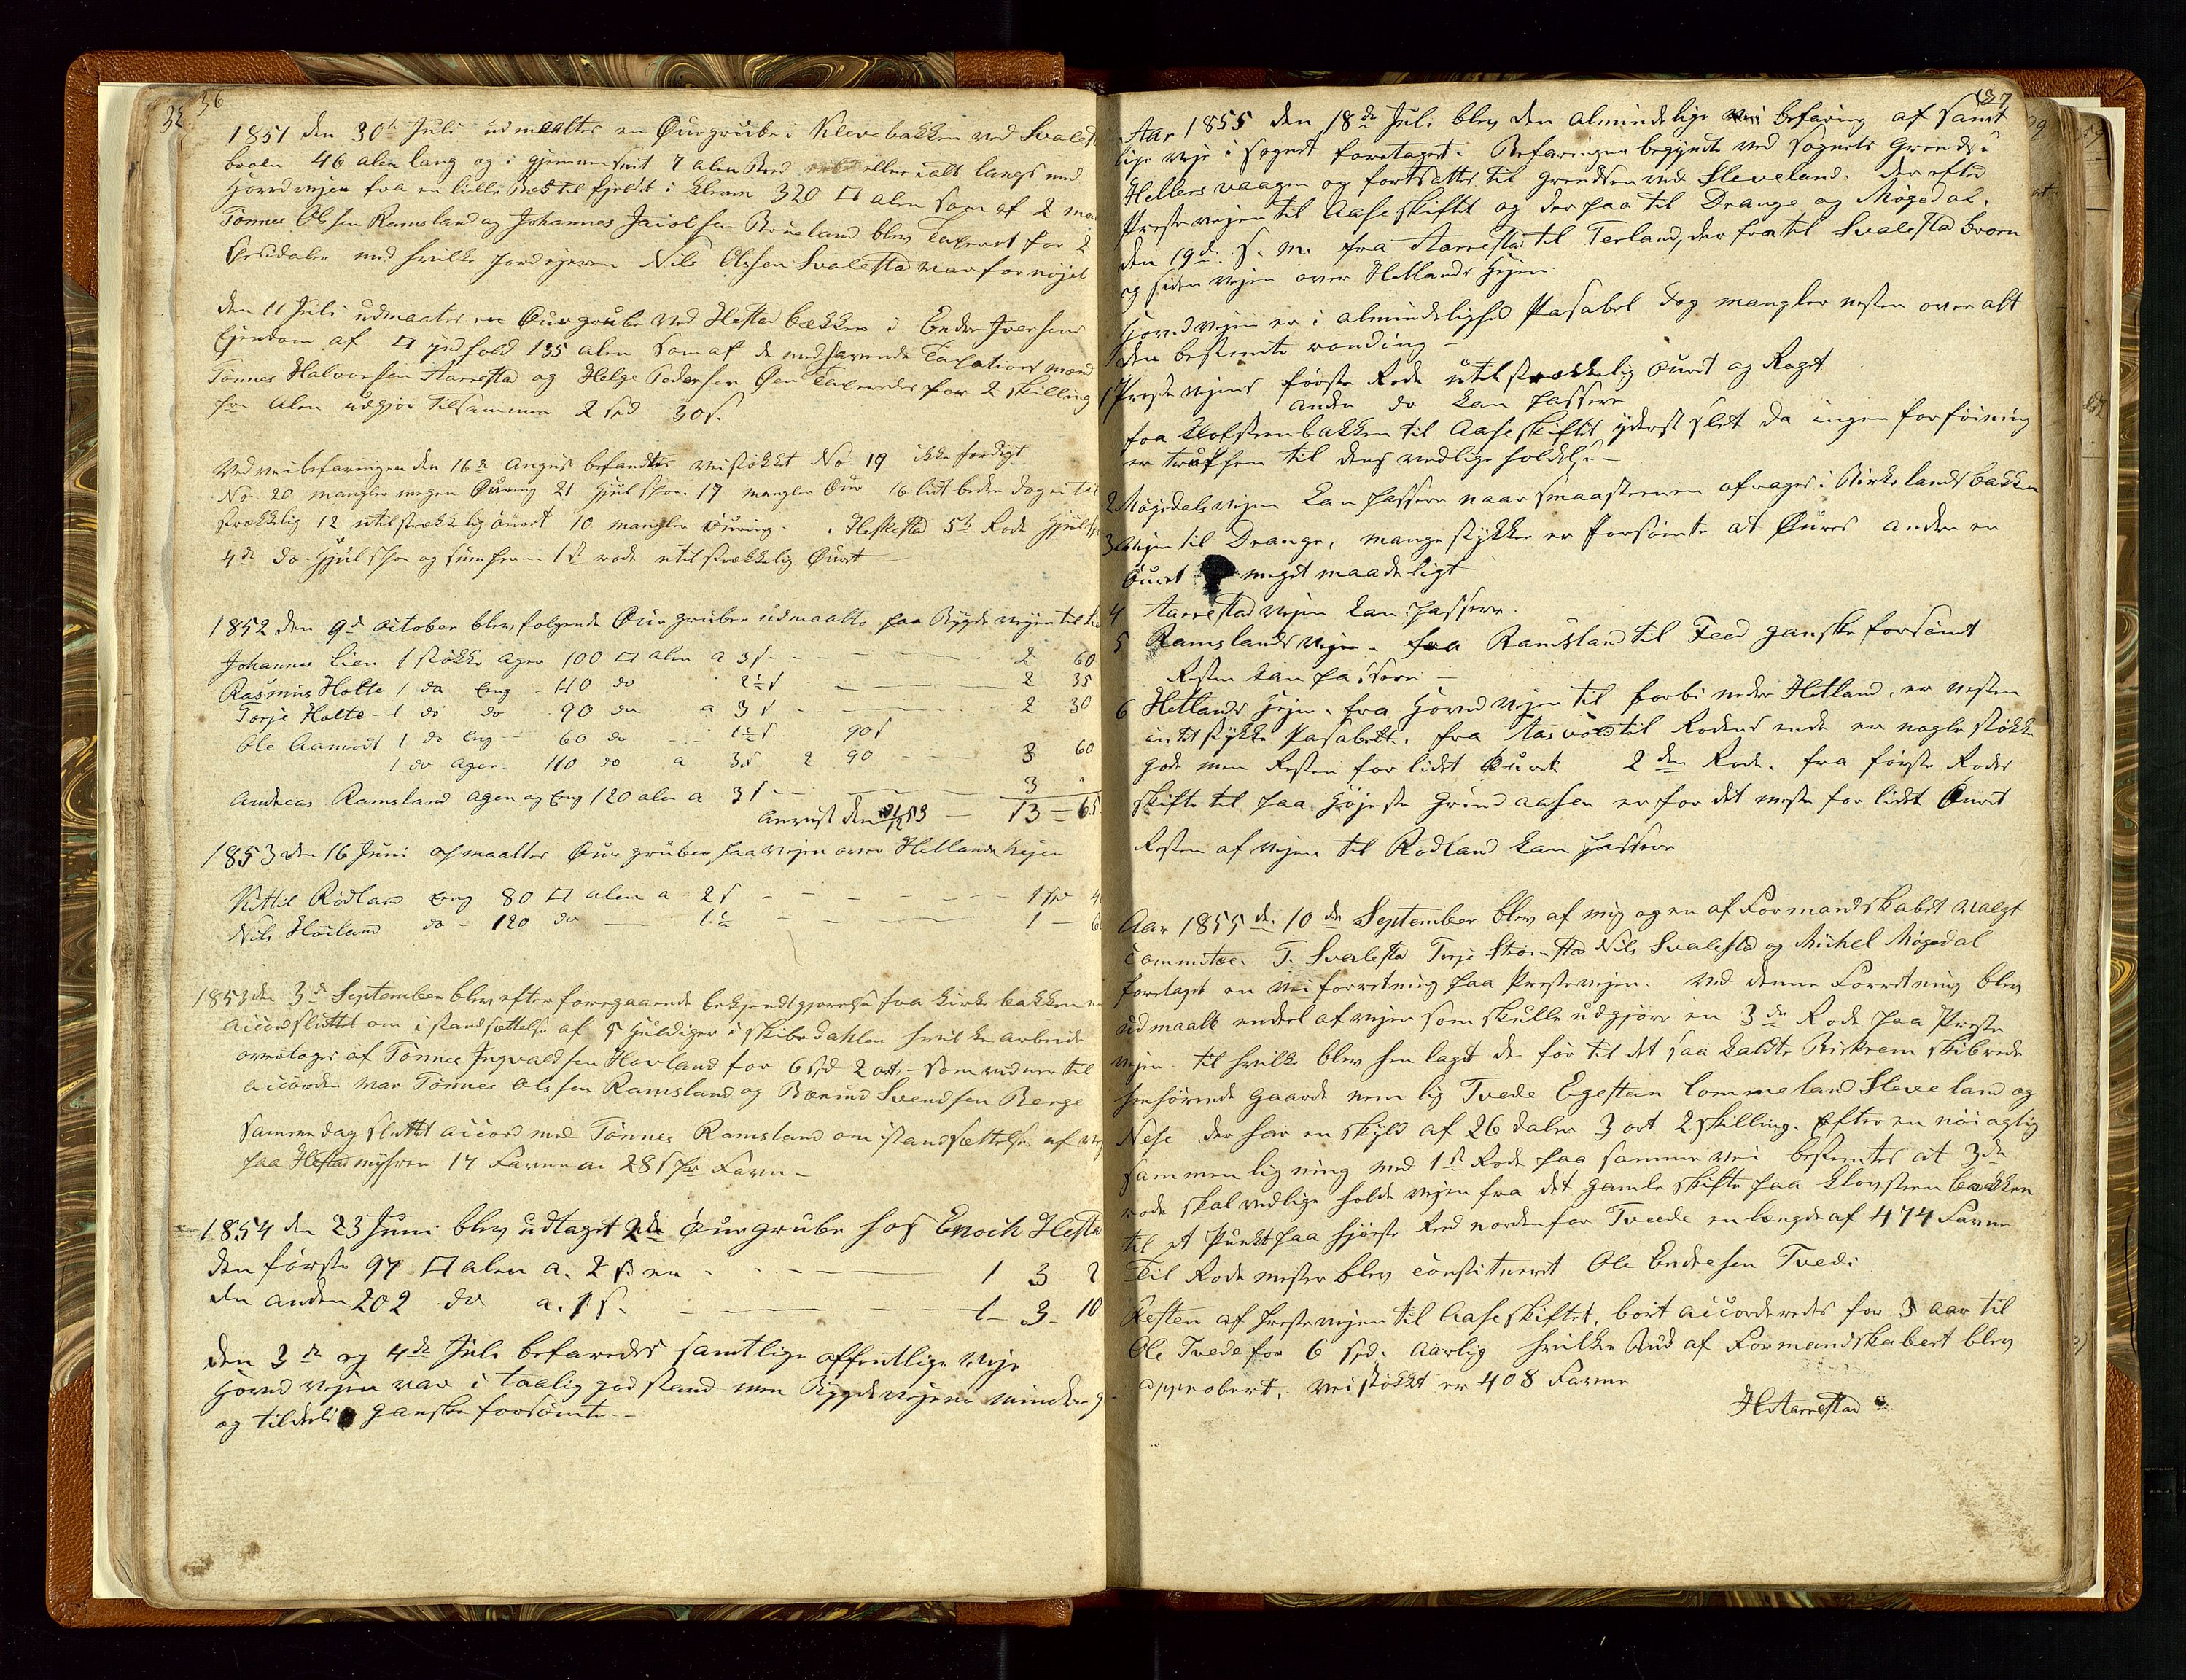 32 36
1851 den 30te Juli udmaaltes en Øurgrube i Klevebakken ved Svalest
broen 46 alen lang og i gjennemsnit 7 alen Bred eller ialt langs med
Hovedvejen fra en lille Bæk til fjeldet i Kleven 320 □ alen som af 2 mæ
Tønnes Olsen Ramsland og Johannes Jacobsen Brueland blev Taxeret for 2
Spesidaler med hvilke jordejeren Nils Olsen Svalestad var fornøjet
den 11 Juli udmaaltes en Øurgrube ved Hestad bækken i Endre Iversens
Ejendom af □ indhold 135 alen som af de medhavende Taxations mænd
Tønnes Halvorsen Aarrestad og Helge Pedersen Øen Taxeredes for 2 skilling
pr alen udgjør tilsammen 2 spd 30 s.
Ved veibefaringen den 16de August befandtes veistøkket No 19 ikke færdigt
No 20 mangler megen Øuring 21 Hjulspor. 17 mangler Øur 16 lidt bedre dog util
strækkelig 12 utilstrækkelig øuret 10 mangler Øuring. Heskestad 5te Rode Hjulsp
4de do Hjulspor og 1ste rode utilstrækkelig Øuret
1852 den 9de October blev følgende Øurgruber udmaalte paa Bygdevejen til
Johannes Lien 1 støkke ager 100 □ alen a 3 s. - 2 60
Rasmus Holte 1 do Eng - 110 do 2½ s - 2 35
Torje Holte - 1 do do 90 do a 3 s - 2 30
Ole Aamodt 1 do Eng - 60 do - 1½ s. 90 s
1 do ager. 110 do a 3 s 2 90 - 3 60
Andreas Ramsland ager og Eng 120 alen a 3 s - 3 "
Anvist den 31/12 53 - 13 = 65
1853 den 16 Juni afmaaltes Øurgruber paa vejen over Hetlands hejen
Kittil Rødland Eng 80 □ alen a 2 s - 1 spd 4
Nils Høiland do - 120 do - 1½ - 1 - 6
1853 den 3de September blev efter foregaaende bekjendtgjørelse fra kirke bakken
accord sluttet om i standsættelse af 5 Huldiger i skibsdahlen hvilke arbeide
overtoges af Tønnes Ingvaldsen Hovland for 6 spd 2 ort - som vidner til
accorden var Tønnes Olsen Ramsland og Bærund Svendsen Berge
Samme dag sluttet accord med Tønnes Ramsland om istandsættelse af vej
paa Hestad myhren 17 Favne a 28 s pr Favn -
1854 den 23 Juni blev udtaget 2de Øurgrube hos Enoch Hesta
den første 97 □ alen a. 2 s en - 1 3 2
den anden 202 do a. 1 s. - 1 - 3 - 10
den 3de og 4de Juli befaredes samtlige offentlige Veje
Hovedvejen var i taalig god stand men Bygdevejene mindre g
og tildeels ganske forsømte -
37
Aar 1855 den 18de Juli blev den almindelige Vei befaring af samt
lige veje i sognet foretaget. Befaringen begyndte ved sognets Grendse i
Hellersvaagen og fortsattes til grendsen ved Sleveland. derefter
Prestevejen til Aaseskiftet og derpaa til Drange og Møgedal.
den 19de s. m. fra Aarrestad til Terland, der fra til Svalestad broen
og siden vejen over Hetlands Hejen.
Hovedvejen er i almindelighed Pasabel dog mangler nesten over alt
den bestemte ronding -
1 Prestevejens første Rode utilstrækkelig øuret og Raget
anden do kan Passere
fra Klopsteenbakken til Aaseskiftet yderst slet da ingen forføining
er truffen til dens vedligeholdelse -
2 Møgedalsvejen kan passere naar smaastenene afrages i Birkelandsbakken
3 Vejen til Drange, mange stykker er forsømte at Øures andre er
Øuret meget maadeligt
4 Aarrestadvejen kan passere.
5 Ramslandsvejen - fra Ramsland til Feed ganske forsømt
Resten kan passere -
6 Hetlands Hejen. fra Hovedvejen til forbi nedre Hetland. er nesten
intet stykke Pasabelt. fra Aasvold til Rodens ende er nogle støkke
gode men Resten for lidet Øuret 2den Rode. fra første Rodes
skifte til paa Højeste Grindaasen er for det meste for lidet Øuret
Resten af vejen til Rødland kan passere
Aar 1855 d. 10de September blev af mig og en af Formandskabet valgt
committee. T. Svalestad Torje Strømstad Nils Svalestad og Michel Møgedal
foretaget en Vei forretning paa Prestevejen. ved denne Forretning blev
udmaalt endeel af vejen som skulle udgjøre en 3de Rode paa Preste
vejen til hvilke blev henlagt de før til det saa kaldte Birkrem skibrede
henhørende Gaarde nemlig Tvede Egesteen Lommeland Sleveland og
Nese der har en skyld af 26 daler 3 ort 2 skilling. Efter en nøiagtig
sammenligning med 1ste Rode paa samme Vei bestemtes at 3de
rode skal vedligeholde vejen fra det gamle skifte paa klopsteen bakken
til et Punkt paa Hjørste Red nordenfor Tveede en længde af 474 Favne
Til Rodemester blev constitueret Ole Endresen Tvede
Resten af Prestevejen til Aaseskiftet, bort accorderedes for 3 aar til
Ole Tvede for 6 spd. aarlig hvilke Bud af Formandskabet blev
approbert. veistøkket er 408 Favne
H Aarrestad